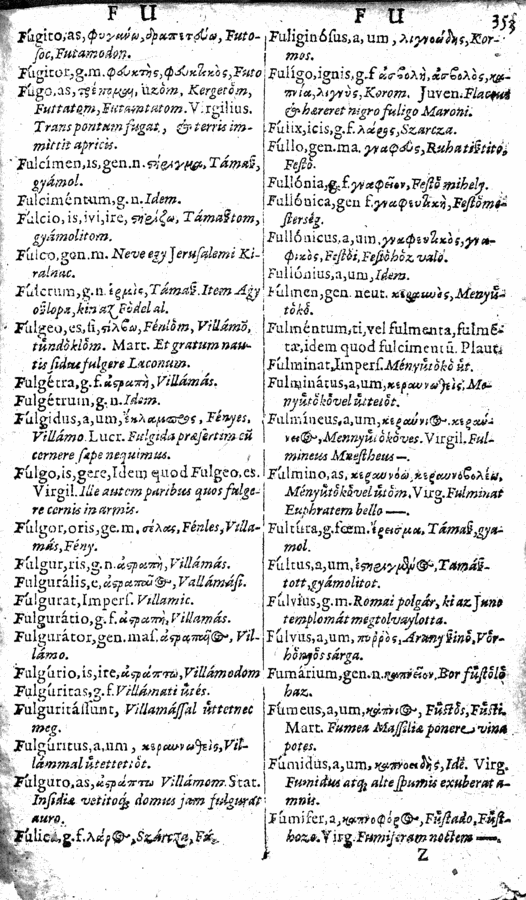 F U
F U 353
Fugito,as, φυγαίω,δραπετδύω, Futo-
soc,Futamodon.
Fugitor,g.m. φδυκτὴς,φδυκτικὸς,Futo
Fugo,as,τρέπομαι, ûzôm, Kergetôm,
Futtatom,Futamtatom. Virgilius.
Trans pontum fugat, & terris im-
mittit apricis.
Fulcîmen,is,gen.n. στήριγμα, Támaß,
gyámol.
Fulciméntum,g.n. Idem.
Fulcio,is,ivi,ire, στηρίζω, Támaßtom,
gyámolitom.
Fulco,gen.m. Neve egy Jerusalemi Ki-
ralnac.
Fulcrum,g.n. ἑρμὶς, Támaß. Item Agy
oßlopa,kin az Födel al.
Fulgeo,es,si, στίλβω, Fénlôm, Villámô,
tûndôklôm. Mart. Et gratum nau-
tis sidus fulgere Laconum.
Fulgétra,g.f. ἀστραπὴ, Villámás.
Fulgétrum,g.n. Idem.
Fulgidus,a,um, ἐκλαμπρος, Fényes,
Villámo. Lucr. Fulgida præsertim cũ
cernere sæpe nequimus.
Fulgo,is,gere,Idem quod Fulgeo,es.
Virgil. Ille autem paribus quos fulge-
re cernis in armis.
Fulgor,oris,ge.m, σέλας, Fénles, Villa-
más, Fény.
Fulgur,ris,g.n. ἀστραπὴ, Villámás.
Fulgurális,e, ἀστραπαῖος, Vallámási.
Fulgurat,Impers. Villamic.
Fulgurátio,g.f. ἀστραπὴ, Villamás.
Fulgurátor,gen.mas. ἀστραπαῖος, Vil-
lámo.
Fulgúrio,is,ire, ἀστράπτω, Villámodom
Fulgúritas,g.f. Villámati ûtés.
Fulguritássunt, Villamással ûttetnec
meg.
Fulgúritus,a,um, κεραυνωθεὶς, Vil-
lámmal ûtettetiôt.
Fulguro,as, ἀστράπτω Villámom. Stat.
Insidiæ vetitoq; domus jam fulgurat
auro.
Fulica,g.f. λάρος, Szártza, Fá-
Fuliginósus,a,um, λιγνυώδης, Kor-
mos.
Fulígo,ignis,g.f ἀσβολὴ, ἀσβολὸς, κα-
πνία, λιγνὺς, Korom. Juven. Flaccus
& hæreret nigro fuligo Maroni.
Fúlix,icis,g.f. λάρος, Szarcza.
Fúllo,gen.ma. γναφδὺς, Ruhatißtito,
Festô.
Fullónia,g.f. γναφεῖον, Festô mihely.
Fullónica,gen f. γναφευτικὴ, Festômé-
sterség.
Fullónicus,a,um, γναφευτικὸς, γνα-
φικὸς, Festôi, Festôhôz valo.
Fullónius,a,um, Idem.
Fulmen,gen. neut. κεραυνὸς, Menyû-
tôkô.
Fulméntum,ti,vel fulmenta, fulmẽ-
tæ,idem quod fulcimentũ. Plaut.
Fulminat,Impers. Ményûtôkô ût.
Fulminátus,a,um, κεραυνωθεὶς, Me-
nyûtôkôvel ûtetôt.
Fulmíneus,a,um, κεραύνιος, κεραύ-
νειος, Mennyûtôkôves. Virgil. Ful-
mineus Mnestheus —.
Fulmino,as, κεραυνόω, κεραυνοβολέω,
Ményûtôkôvel ûtôm, Virg. Fulminat
Euphratem bello —.
Fultúra,g.fœm. ἔρεισμα, Támaß, gya-
mol.
Fultus,a,um, ἐστηριγμένος, Támaß-
tott, gyámolitot.
Fúlvius,g.m. Romai polgár, ki az Juno
templomát megtolvaylotta.
Fúlvus,a,um, πυῤῥὸς, Arany ßinô, Vôr-
hônyôs sárga.
Fumárium,gen.n. καπνεῖον, Bor fûstôlô
haz.
Fúmeus,a,um, κάπνιος, Fûstôs, Fûsti.
Mart. Fumea Massiliæ ponere vina
potes.
Fúmidus,a,um, καπνοειδὴς, Idẽ. Virg.
Fumidus atq; alte spumis exuberat a-
mnis.
Fúmifer,a, καπνοφόρος, Fûstado, Fûst-
hozo. Virg. Fumiferam noctem —.
Z